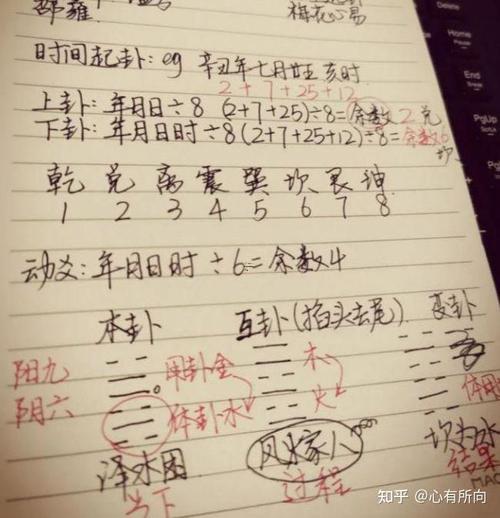 邵雍
梅花心易
时间起卦: eg 辛丑年七月廿五 亥时
2+7+25+12
上卦: 年月日÷8 (2+7+25)÷8=余数2 兑
下卦: 年月日时÷8(2+7+25+12)÷8=余数6
坎
乾 兑 离 震 巽 坎 艮 坤
1 2 3 4 5 6 7 8
动爻: 年月日时÷6=余数4
本卦 互卦(掐头去尾) 变卦
阳九 用卦金 木
阴六 体卦水 火 体用
泽水困 风火家人 坎为水
当下 过程 结果
知乎 @心有所向
Home
PgUp
PgDn
End